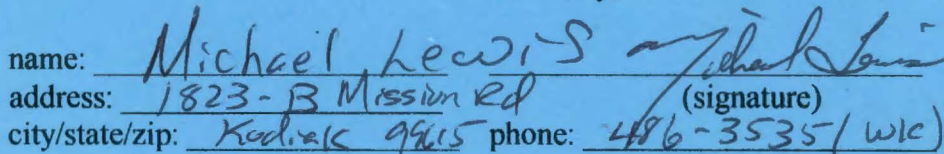 name: Michael Lewis Michael Lewis
address: 1823-B Mission Rd (signature)
city/state/zip: Kodiak 99615 phone: 486-3535 (wk)